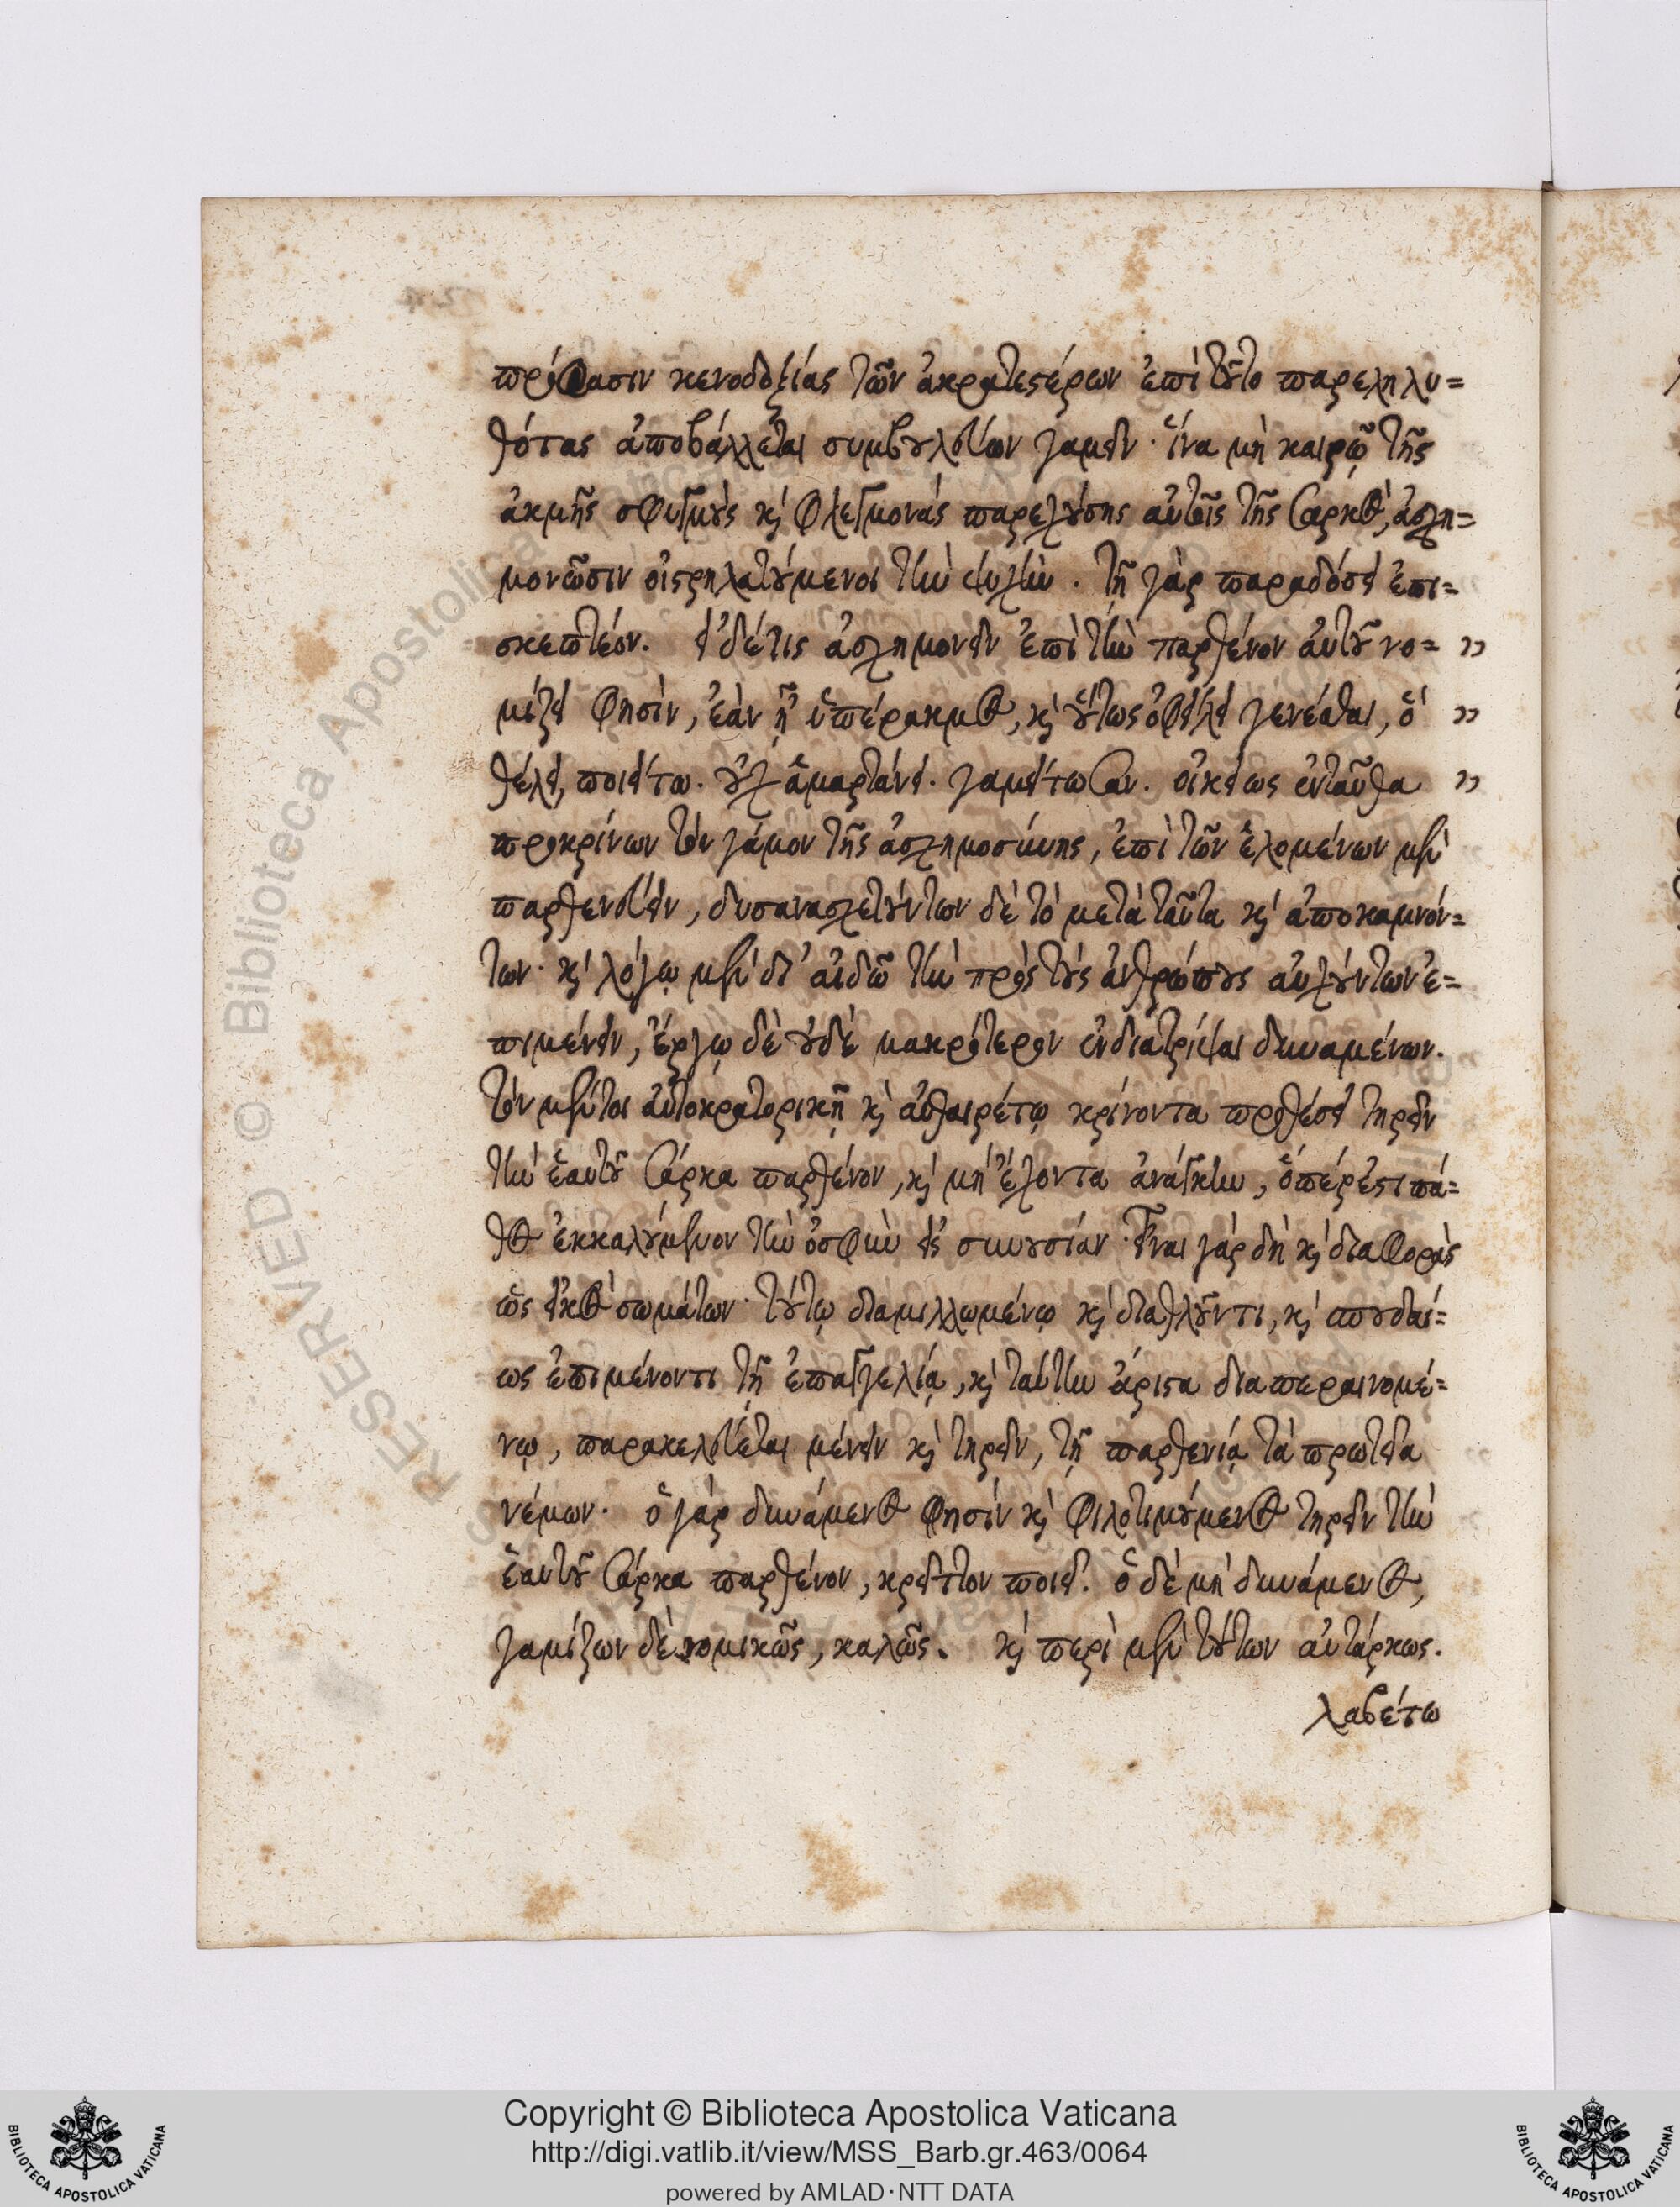 πρόφασιν κενοδοξίας τῶν ἀκρατεστέρων ἐπὶ τοῦτο παρεληλυ=
θότας ἀποβάλλεται συμβουλεύων γαμεῖν· ἵνα μὴ καιρῷ τῆς
ἀκμῆς σφυγμοὺς καὶ φλεγμονάς παρεχούσης αὐτοῖς τῆς σαρκὸς, ἀσχη=
μονῶσιν οἰστρηλατούμενοι τὴν ψυχὴν. τῇ γὰρ παραδόσει ἐπι=
σκεπτέον. εἰ δέ τις ἀσχημονεῖν ἐπὶ τὴν παρθένον αὐτοῦ νο= ,,
μίζει φησὶν, ἐὰν ᾖ ὑπέρακμος, καὶ οὕτως ὀφείλει γενέσθαι, ὃ ,,
θέλει, ποιείτω. οὐχ ἁμαρτάνει. γαμείτωσαν. οἰκείως ἐνταῦθα ,,
προκρίνων τὸν γάμον τῆς ἀσχημοσύνης, ἐπὶ τῶν ἑλομένων μὲν
παρθενεύειν, δυσανασχετούντων δὲ τὸ μετὰ ταῦτα καὶ ἀποκαμνόν=
των· καὶ λόγῳ μὲν δι' αἰδῶ τὴν πρὸς τοὺς ἀνθρώπους αὐχούντων ἐ=
πιμένειν, ἔργῳ δὲ οὐδὲ μακρότερον ἐνδιατρίψαι δυναμένων.
τὸν μέντοι αὐτοκρατορικῇ καὶ αὐθαιρέτῳ κρίνοντα προθέσει τηρεῖν
τὴν ἑαυτοῦ σάρκα παρθένον, καὶ μὴ ἔχοντα ἀνάγκην, ὅπέρ ἐστι πά=
θος ἐκκαλούμενον τὴν ὀσφὺν εἰς συνουσίαν· εἶναι γάρ δὴ καὶ διαφορὰς
ὡς εἰκὸς σωμάτων· τούτῳ διαμιλλωμένῳ καὶ διαθλοῦντι, καὶ σπουδαί=
ως ἐπιμένοντι τῇ ἐπαγγελίᾳ, καὶ ταύτην ἄριστα διαπεραινομέ=
νῳ, παρακελεύεται μένειν καὶ τηρεῖν, τῇ παρθενίᾳ τὰ πρωτεῖα
νέμων. ὁ γὰρ δυνάμενος φησὶν καὶ φιλοτιμούμενος τηρεῖν τὴν
ἑαυτοῦ σάρκα παρθένον, κρεῖττον ποιεῖ. ὁ δὲ μὴ δυνάμενος,
γαμίζων δὲ νομικῶς, καλῶς. καὶ περὶ μὲν τούτων αὐτάρκως.
λαβέτω
Copyright © Biblioteca Apostolica Vaticana
http://digi.vatlib.it/view/MSS_Barb.gr.463/0064
powered by AMLAD·NTT DATA
RESERVED © Biblioteca Apostolica
BIBLIOTECA APOSTOLICA VATICANA
BIBLIOTECA APOSTOLICA VATICANA